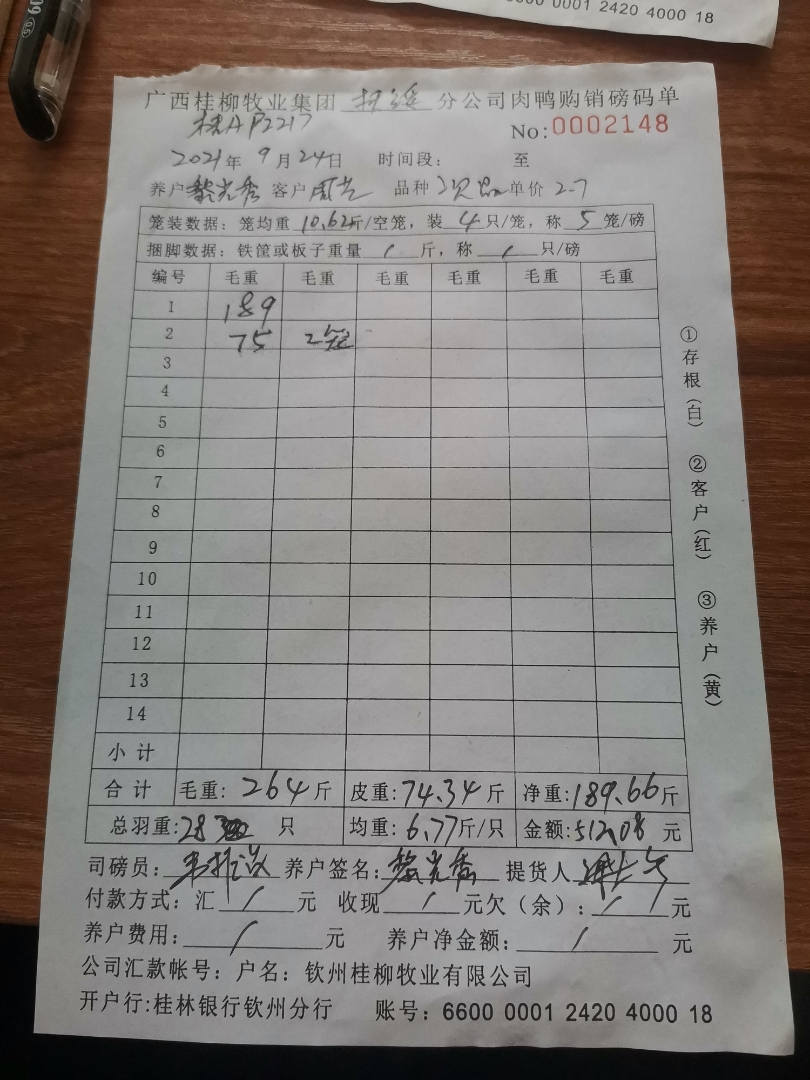 0001 2420 4000 18
广西桂柳牧业集团 分公司肉鸭购销磅码单
桂AP2217
No:0002148
2021年 9月24日 时间段: 至
养户黎光秀 客户周 品种次品 单价 2.7
笼装数据: 笼均重 10.62斤/空笼, 装 4只/笼, 称 5 笼/磅
捆脚数据: 铁筐或板子重量 / 斤, 称 / 只/磅
编号 毛重 毛重 毛重 毛重 毛重 毛重
1 189
2 75 2笼
3
4
5
6
7
8
9
10
11
12
13
14
小计
合计 毛重: 264斤 皮重:74.34斤 净重:189.66斤
总羽重:28 只 均重: 6.77斤/只 金额:512.08 元
司磅员: 养户签名:黎光秀 提货人
付款方式: 汇 / 元 收现 / 元欠(余): / / 元
养户费用: / 元 养户净金额: / 元
公司汇款帐号: 户名: 钦州桂柳牧业有限公司
开户行:桂林银行钦州分行 账号: 6600 0001 2420 4000 18
①存根(白) ②客户(红) ③养户(黄)